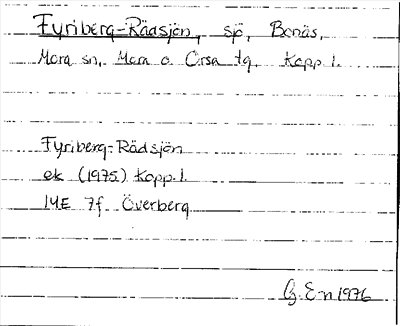 Fyriberg-Rädsjön, sjö, Bonäs,
Mora sn, Mora o. Orsa tg. Kopp. l.
Fyriberg-Rädsjön
ek (1975) Kopp. l.
14E 7f Överberg
G. E-n 1976